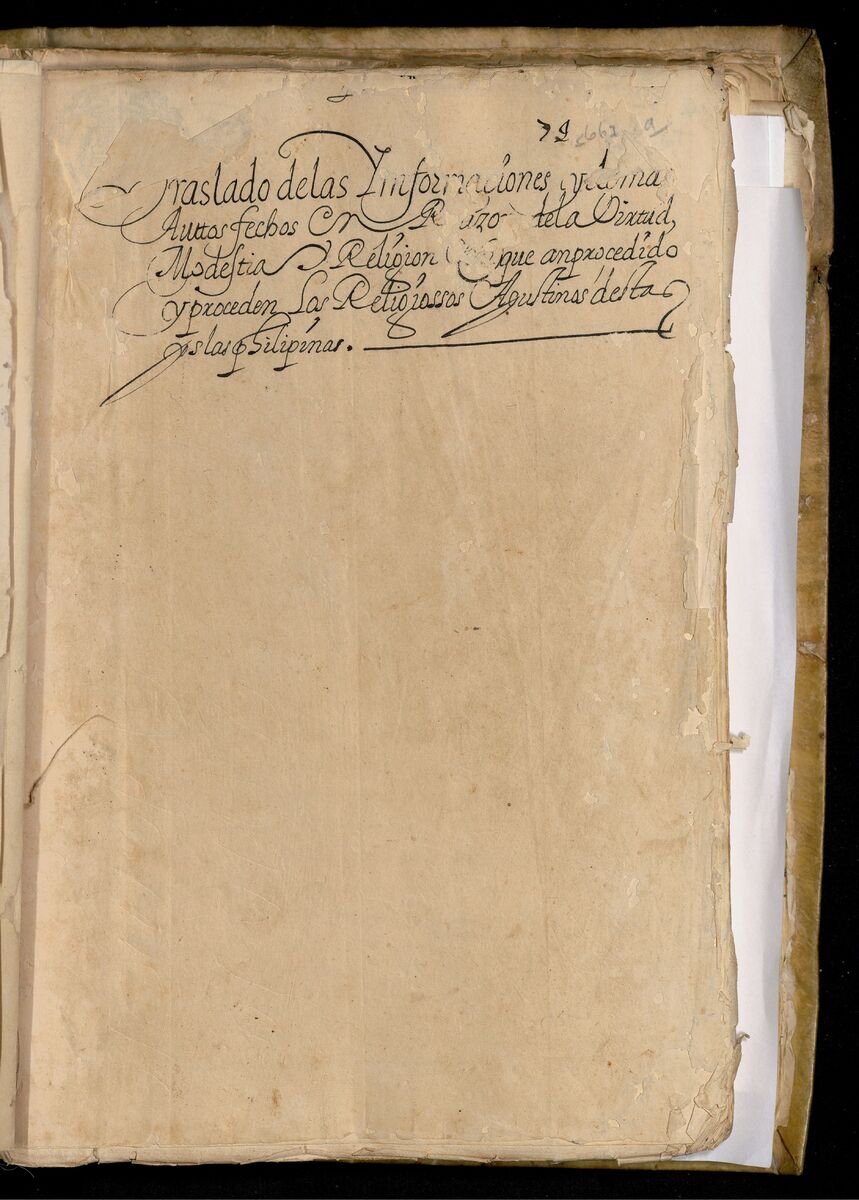 79
Traslado de las Ynformaciones y demas
Auttos fechos En Razon de la Virtud,
Modestia Y Religion Con que an procedido
y proceden Los Religiossos Agustinos desta
yslas philipinas.